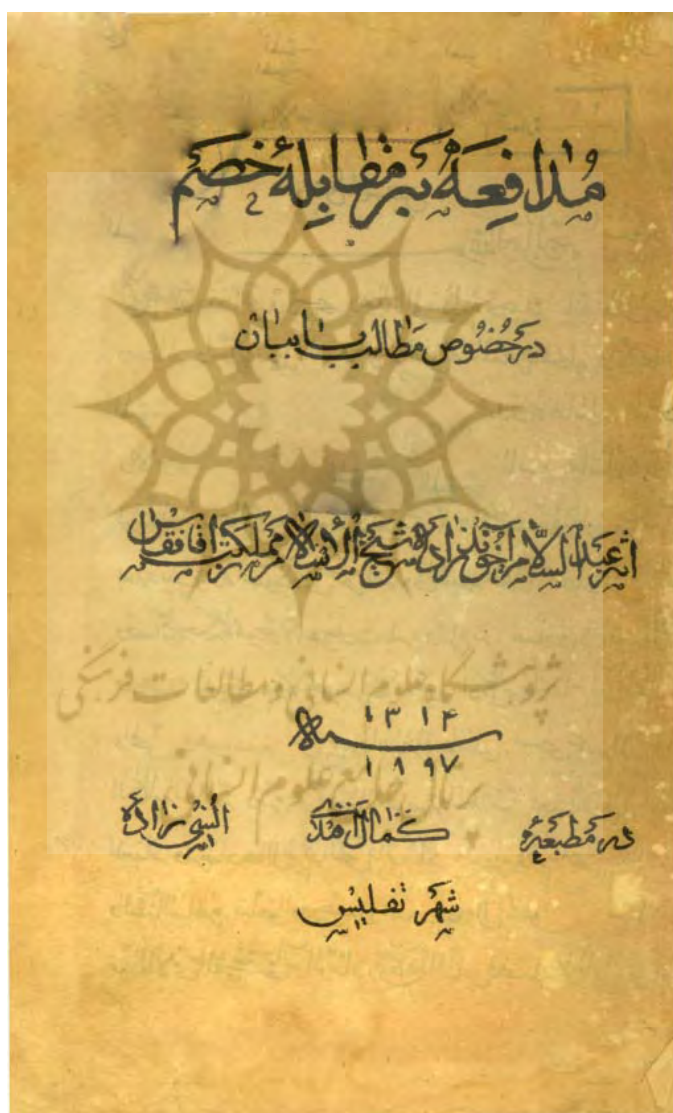 مُدافِعَهٔ بَر مُقابِلِهٔ خَصم
در خُصُوص مَطالب بابیان
اثر عبد السلام آخوند زاده شیخ الأسلام مملکت قافقاس
پژوهشگاه علوم انسانی و مطالعات فرهنگی
۱۳۱۴
سنه
۱۸۹۷
پرتال جامع علوم انسانی
در مطبعهٔ کمال افندی انسی زاده
شهر تفلیس